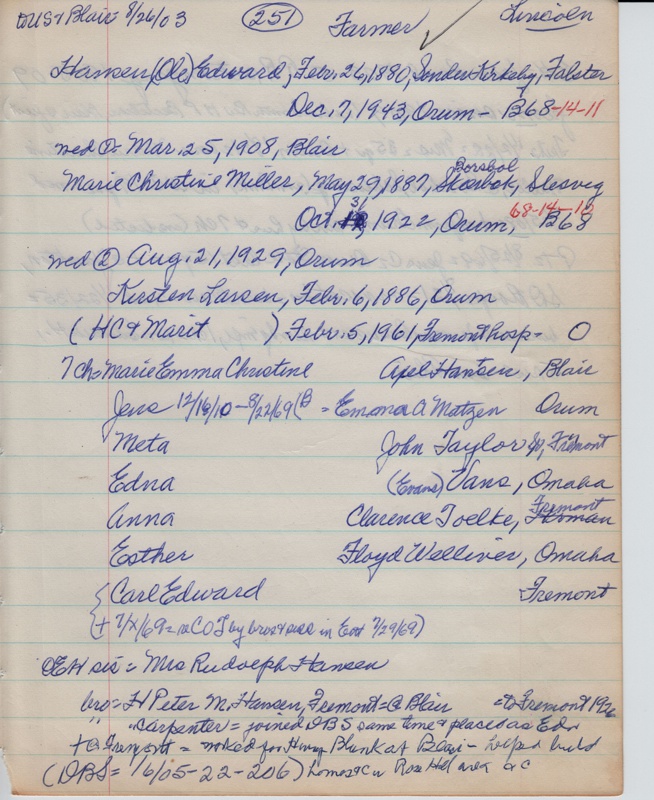 toUS+Blair 8/26/03 (251) Farmer ✓ Lincoln
Hansen (Ole) Edward, Febr. 26, 1880, Sonder Kirkeby, Falster
Dec. 7, 1943, Orum - B68-14-11
wed ① Mar. 25, 1908, Blair
Borsbol
Marie Christine Miller, May 29, 1887, Skærbæk, Slesvig
68-14-10
Oct. 3, 1922, Orum, B68
wed ② Aug. 21, 1929, Orum
Kirsten Larsen, Febr. 6, 1886, Orum
(HC + Marit ) Febr. 5, 1961, Fremont hosp - O
7 ch = Marie Emma Christine Axel Hansen, Blair
Jens 12/16/10 - 8/22/69 (B = Emma A Matzen Orum
Meta John Taylor Sr, Fremont
Edna (Evans) Vans, Omaha
Fremont
Anna Clarence Toelke,
Esther Floyd Welliver, Omaha
Carl Edward Fremont
+ 7/X/69 = COT by bros + sis in Ent 7/29/69)
OEH sis = Mrs Rudolph Hansen
bro = H Peter M. Hansen, Fremont = @ Blair = to Fremont 1926
" " carpenter = joined DBS same time + place as Edw
+ @ Fremont = worked for Henry Blunk at Blair - helped build
(DBS = 1/6/05-22-206) homes &c in Rose Hill area &c